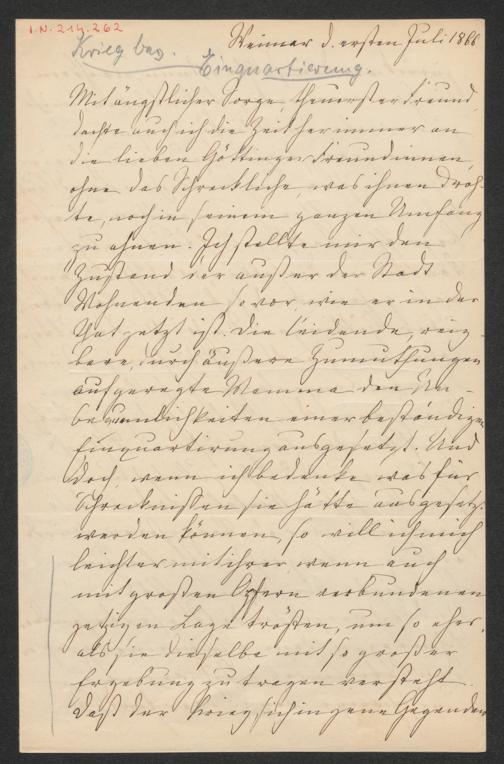 I.N. 214.262
Krieg bes.
Einquartierung.
Weimar d. ersten Juli 1866
Mit ängstlicher Sorge, theuerster Freund,
dachte auch ich die Zeit her immer an
die lieben Göttinger Freundinnen,
ohne das Schreckliche, was ihnen droh-
te, noch in seinem ganzen Umfang
zu ahnen. Ich stellte mir den
Zustand der außer der Stadt
Wohnenden so vor wie er in der
That jetzt ist. Die leidende, reiz-
bare, durch äußere Zumuthungen
aufgeregte Mamma den Un-
bequemlichkeiten einer beständigen
Einquartirung ausgesetzt. Und
doch, wenn ich bedenke was für
Schrecknissen sie hätte ausgesetzt
werden können, so will ich mich
leichter mit ihrer, wenn auch
mit großen Opfern verbundenen
jetzigen Lage trösten, um so eher,
als sie dieselbe mit so großer
Ergebung zu tragen versteht.
Daß der Krieg sich in jene Gegenden